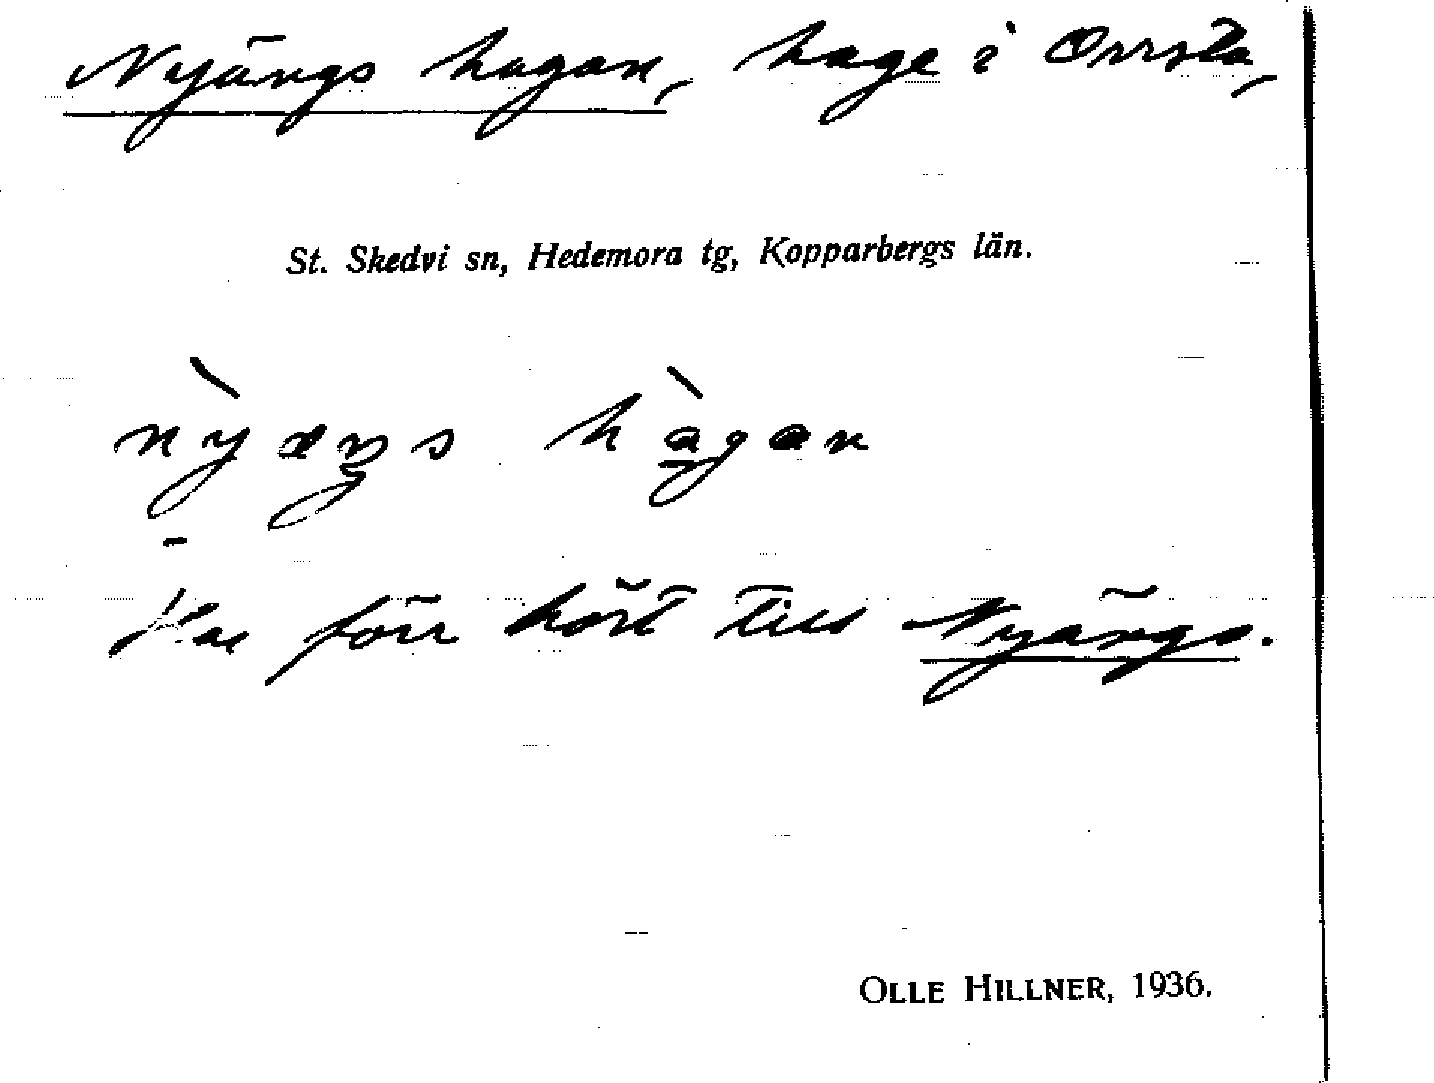 Nyängs hagan, hage i Orrsta,
St. Skedvi sn, Hedemora tg, Kopparbergs län.
nỳæŋs hàgan
Har förr hört till Nyängs.
OLLE HILLNER, 1936.